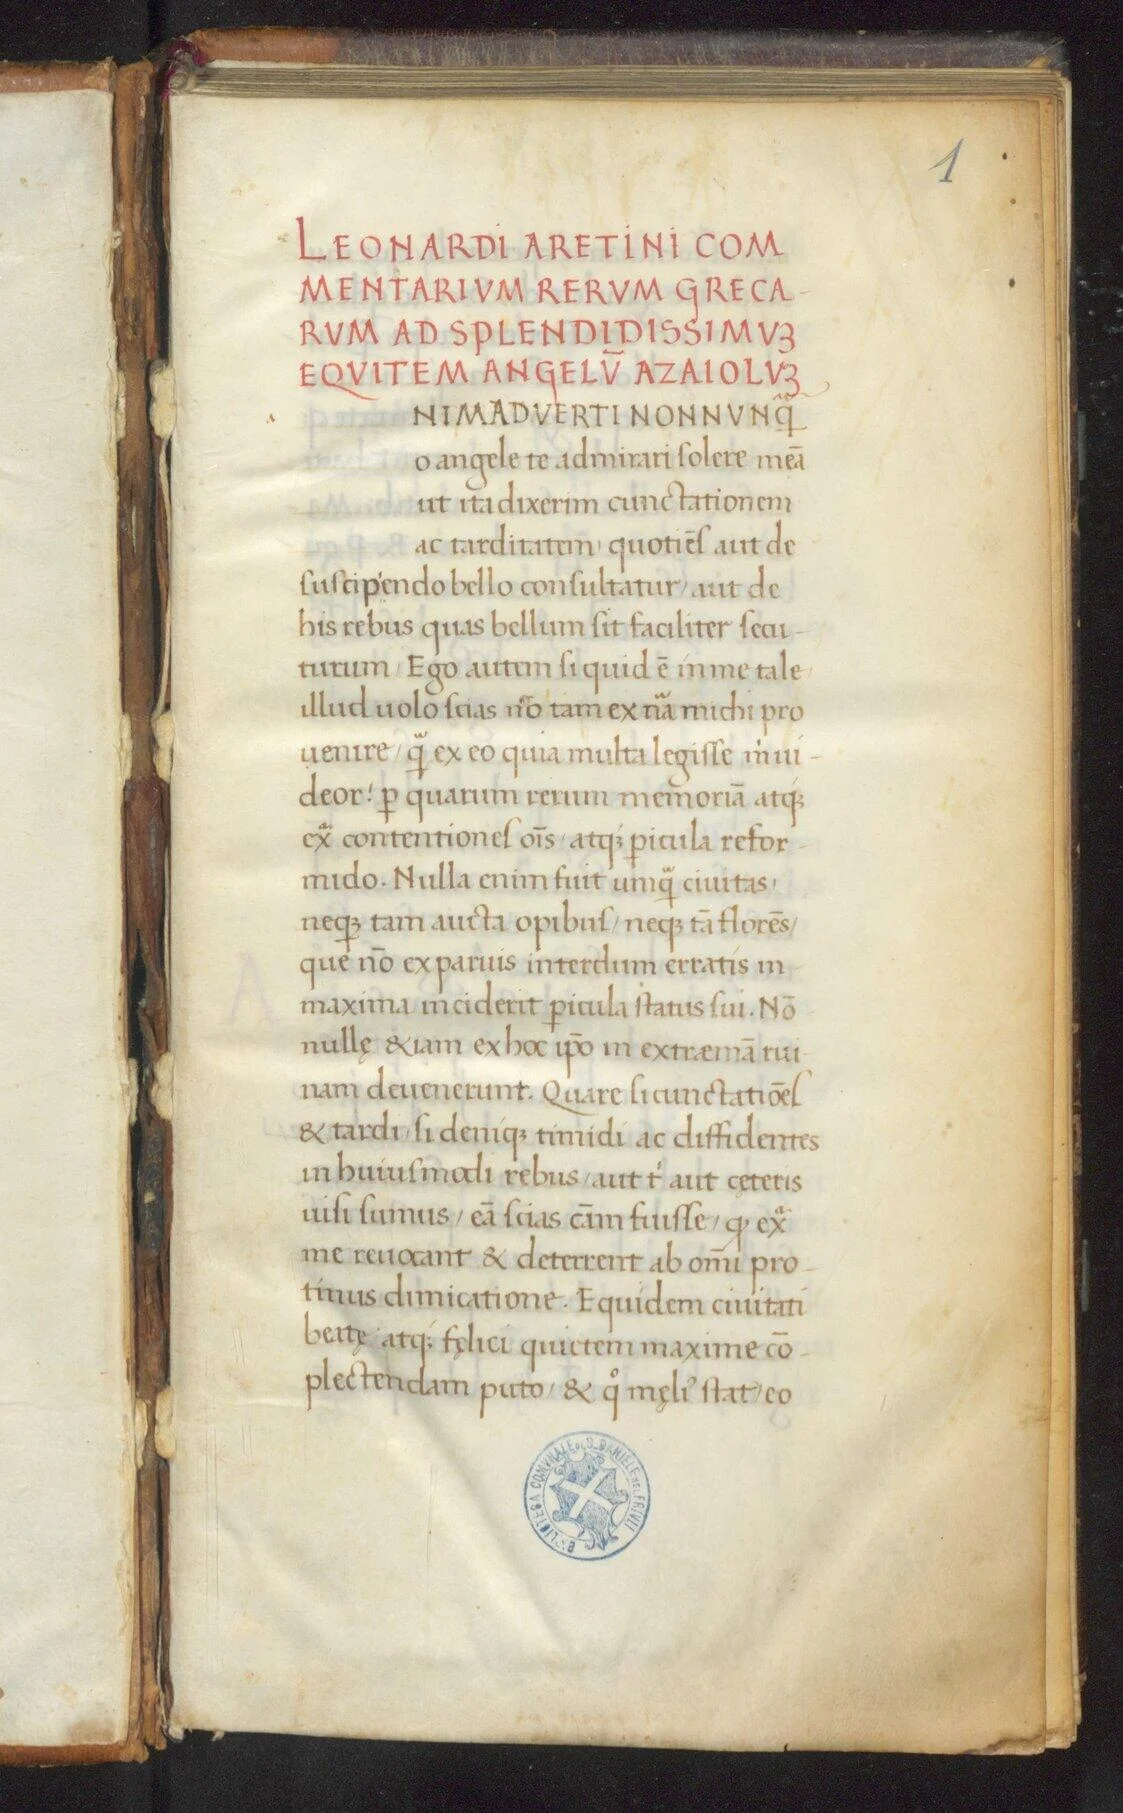 1
LEONARDI ARETINI COM
MENTARIVM RERVM GRECA-
RVM AD SPLENDIDISSIMVꝫ
EQVITEM ANGELV̄ AZAIOLVꝫ
NIMADVERTI NONNVNQᷓ
o angele te admirari solere meā
ut ita dixerim cunctationem
ac tarditatem, quotiēs aut de
suscipiendo bello consultatur/ aut de
his rebus quas bellum sit faciliter secu-
turum/ Ego autem si quid ē in me tale/
illud uolo scias nō tam ex nᷓa michi pro
uenire/ qᷓ ex eo quia multa legisse m̍ ui-
deor! ꝑ quarum rerum memoriā atqꝫ
exᷓ contentiones oīs/ atqꝫ ꝑicula refor-
mido. Nulla enim fuit umqᷓ ciuitas,
neqꝫ tam aucta opibus/ neqꝫ tā florēs/
que nō ex paruis interdum erratis in
maxima inciderit ꝑicula status sui. Nō
nullę &iam ex hoc ip̄o in extræmā rui-
nam deuenerunt. Quare si cunctatiōēs
& tardi/ si deniqꝫ timidi ac diffidentes
in huiusmodi rebus/ aut t̍ aut cęteris
uisi sumus/ eā scias cām fuisse/ ꝙ exᷓ
me reuocant & deterrent ab om̄i pro-
tinus dimicatione. Equidem ciuitati
beatę atqꝫ fęlici quietem maxime cō-
plectendam puto/ & qͦ męli᾽ stat/ eo
BIBLIOTECA COMVNALE DI S. DANIELE NEL FRIVLI